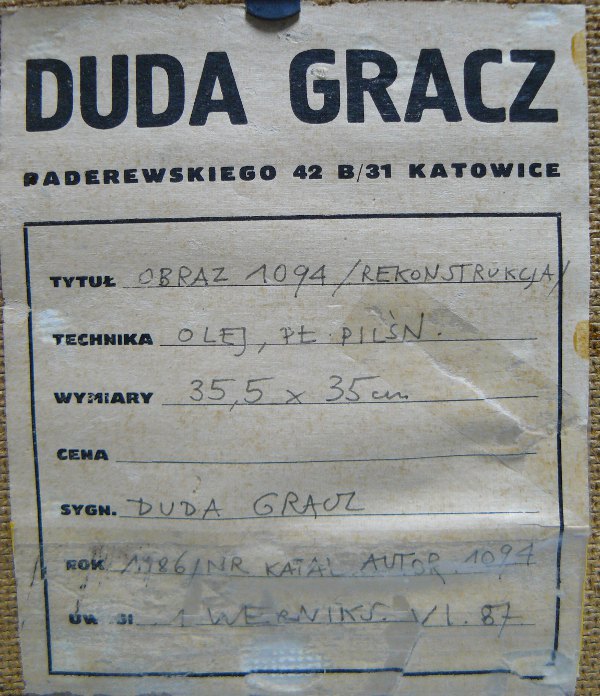 DUDA GRACZ
PADEREWSKIEGO 42 B/31 KATOWICE
TYTUŁ OBRAZ 1094 /REKONSTRUKCJA/
TECHNIKA OLEJ, PŁ. PILŚN.
WYMIARY 35,5 x 35 cm
CENA
SYGN. DUDA GRACZ
ROK 1986/NR KATAL. AUTOR. 1094
UWAGI 1 WERNIKS. VI. 87